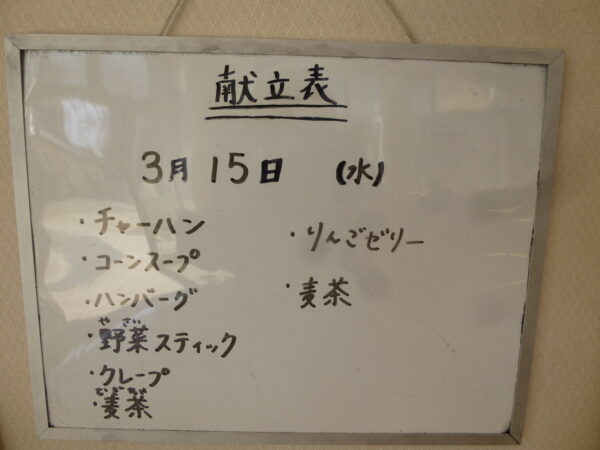 献立表
3月 15日 (水)
・チャーハン
・コーンスープ
・ハンバーグ
やさい
・野菜スティック
・クレープ
むぎちゃ
・麦茶
・りんごゼリー
・麦茶